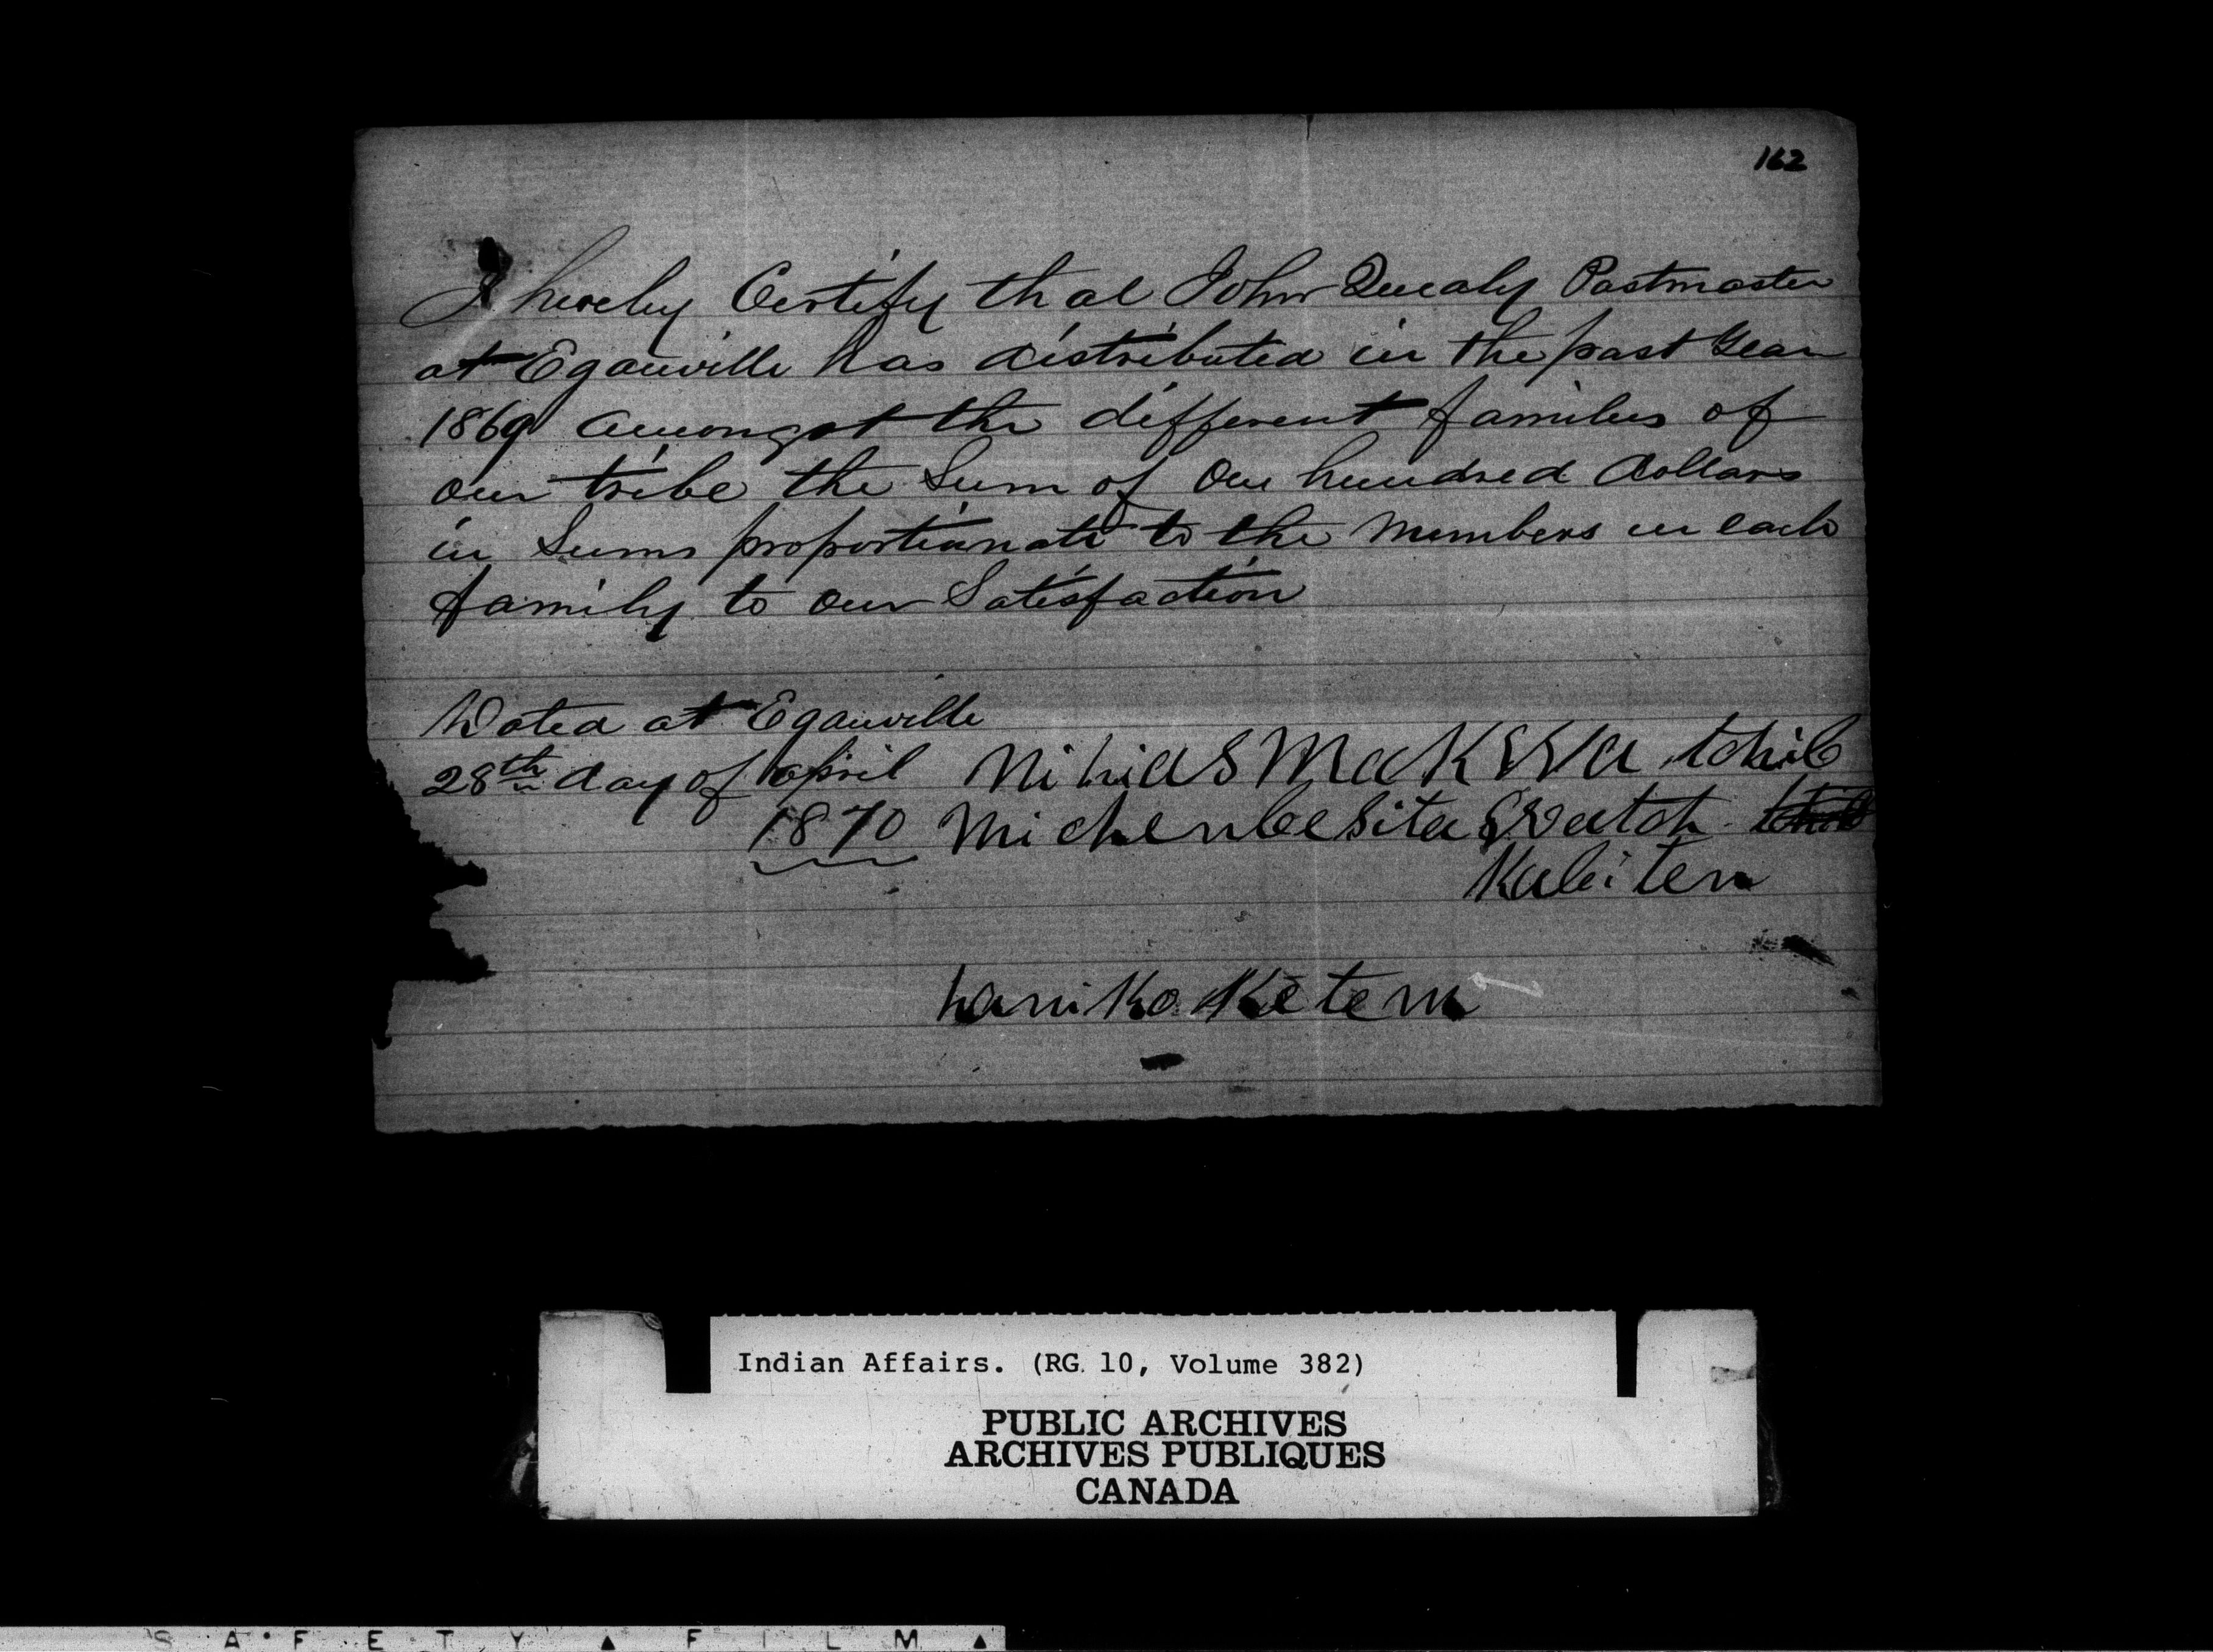 162
I hereby Certify that John Quealy Postmaster
at Eganville has distributed in the past Year
1869 amongst the different families of
our tribe the Sum of One hundred dollars
in Sums proportionate to the Members in each
family to our Satisfaction
Dated at Eganville
28th day of april
1870
Makwa
Michen
Kabiten
Indian Affairs. (RG 10, Volume 382)
PUBLIC ARCHIVES
ARCHIVES PUBLIQUES
CANADA
SAFETY ▲ FILM ▲